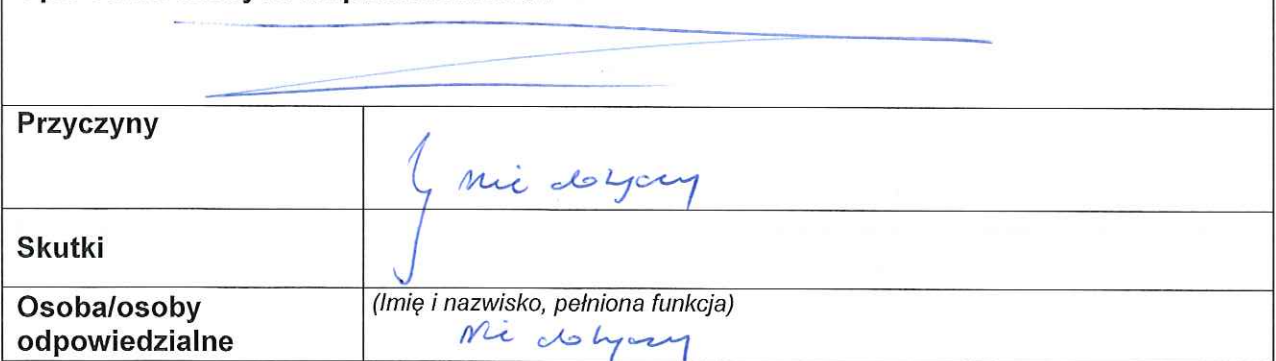 Przyczyny
nie dotyczy
Skutki
Osoba/osoby
odpowiedzialne
(Imię i nazwisko, pełniona funkcja)
nie dotyczy